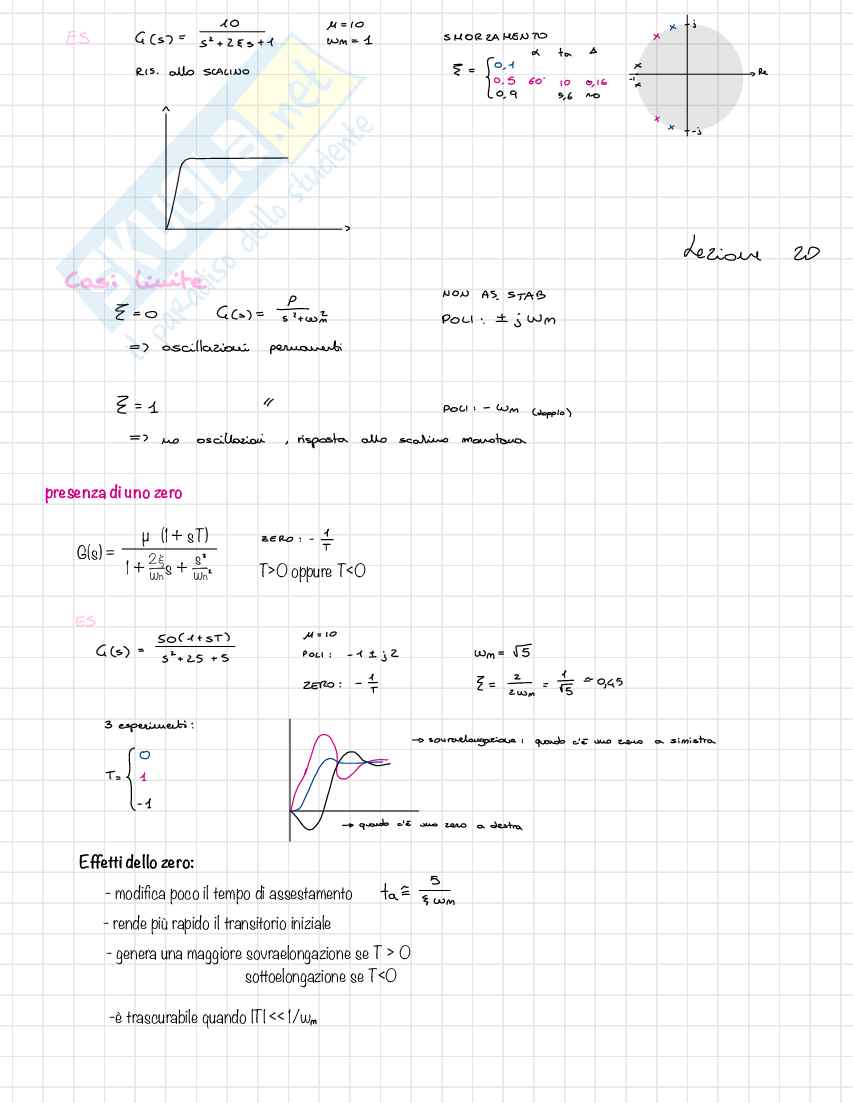 ES G(s) = 10 / (s² + 2ξs + 1) μ = 10
ωm = 1
RIS. allo SCALINO
SMORZAMENTO
α ta Δ
ξ = { 0,1
0,5 60° 10 0,16
0,9 5,6 no
j
-1 Re
-j
SKUOLA.net
il paradiso dello studente
Lezione 20
Casi limite
ξ = 0 G(s) = ρ / (s² + ωm²) NON AS. STAB
POLI: ± j ωm
=> oscillazioni permanenti
ξ = 1 〃 POLI: - ωm (doppio)
=> no oscillazioni, risposta allo scalino monotona
presenza di uno zero
G(s) = μ (1 + sT) / (1 + 2ξ/ωn s + s²/ωn²) ZERO: - 1/T
T>0 oppure T<0
ES
G(s) = 50(1+sT) / (s² + 2s + 5) μ = 10
POLI: -1 ± j2 ωm = √5
ZERO: - 1/T ξ = 2/2ωm = 1/√5 ≈ 0,45
3 esperimenti:
T = { 0
1
-1
→ sovraelongazione: quando c'è uno zero a sinistra
→ quando c'è uno zero a destra
Effetti dello zero:
- modifica poco il tempo di assestamento ta ≅ 5 / ξωm
- rende più rapido il transitorio iniziale
- genera una maggiore sovraelongazione se T > 0
sottoelongazione se T<0
-è trascurabile quando |T| << 1/ωm